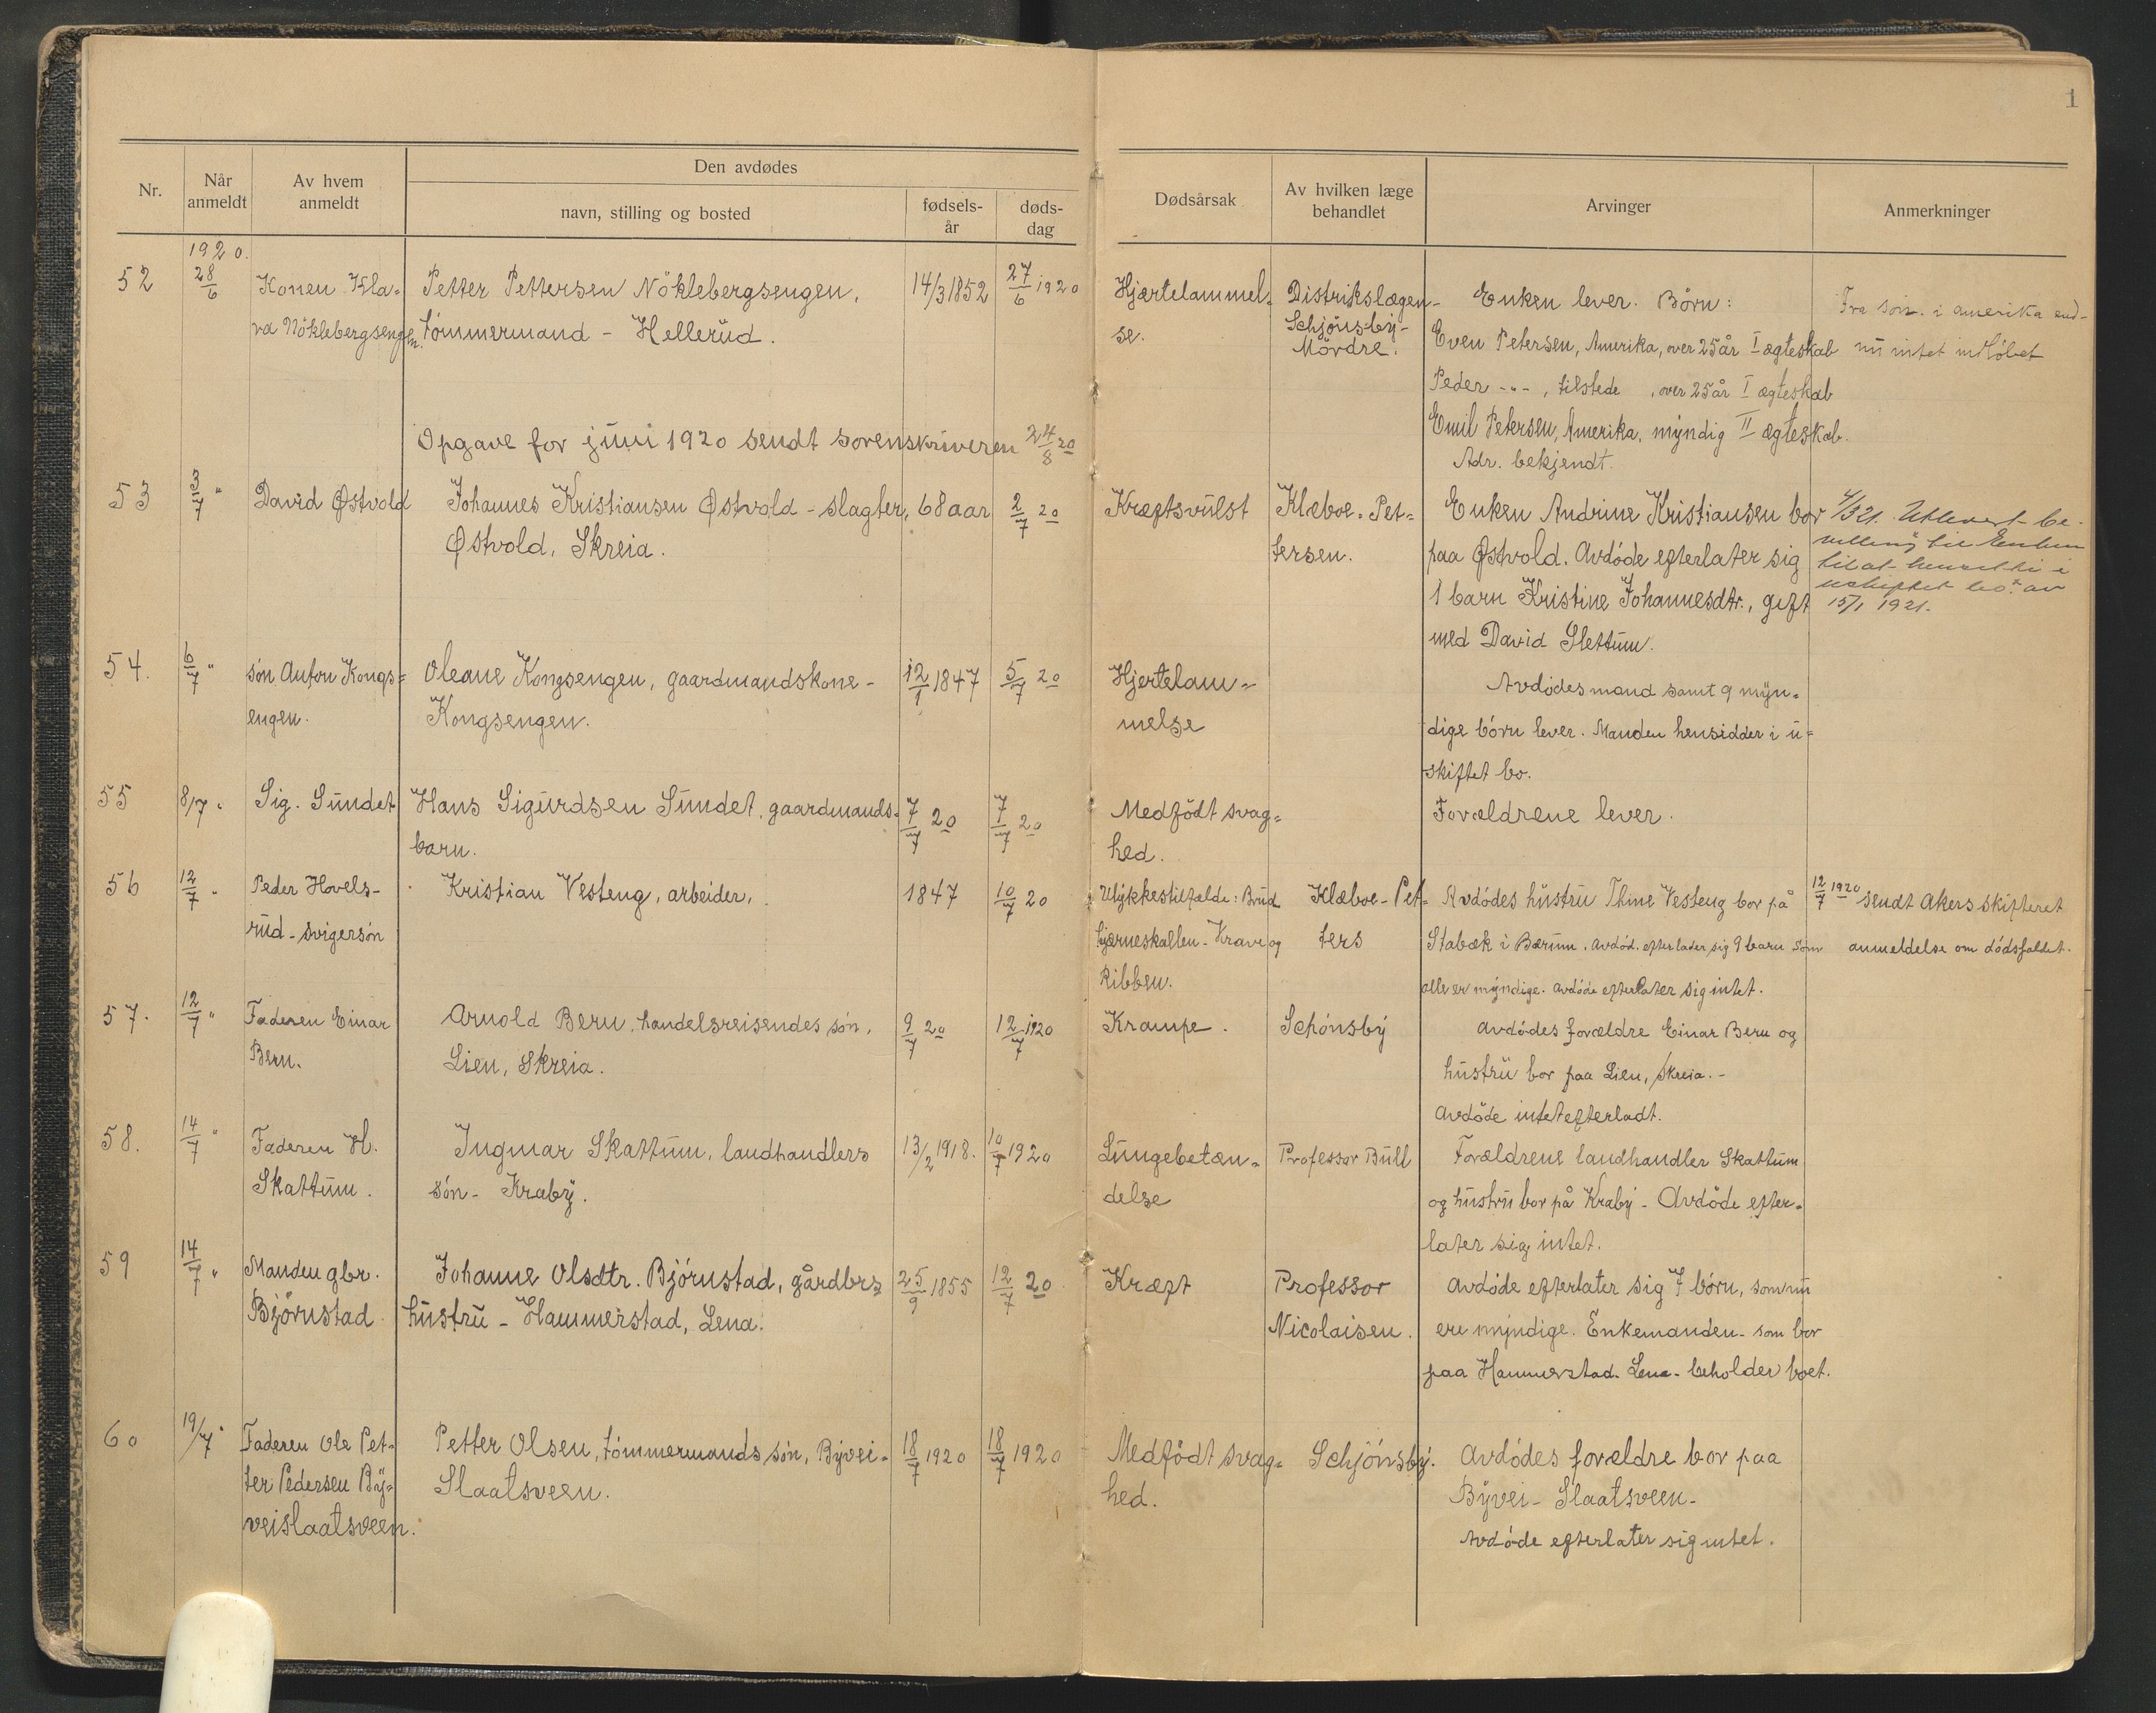 1
Nr.
Når anmeldt
Av hvem anmeldt
Den avdødes
navn, stilling og bosted
fødsels-år
døds-dag
Dødsårsak
Av hvilken læge behandlet
Arvinger
Anmerkninger
1920.
52
28/6
Konen Kla-
va Nöklebergsengen.
Petter Pettersen Nöklebergsengen,
tömmermand - Hellerud.
14/3 1852
27/6 1920
Hjærtelammel-
se.
Distrikslægen-
Schjönsby-
Mördre.
Enken lever. Börn:
Even Petersen, Amerika, over 25 år I ægteskab
Peder -"-, tilstede, over 25 år I ægteskab
Emil Petersen, Amerika, myndig II ægteskab.
Adr. bekjendt.
Fra sön. i amerika end-
nu intet indlöbet
Opgave for juni 1920 sendt sorenskriveren 24/8 20
53
3/7 "
David Østvold
Johannes Kristiansen Østvold - slagter,
Østvold, Skreia.
68 aar
2/7 20
Kræftsvulst
Klæboe-Pet-
tersen.
Enken Andrine Kristiansen bor
paa Østvold. Avdöde efterlater sig
1 barn Kristine Johannesdtr., gift
med David Slettum.
4/3 21. Utlevert be-
villing til Enken
til at hensitte i
uskiftet bo av
15/1 1921.
54.
6/7 "
sön Anton Kongs-
engen.
Oleane Kongsengen, gaardmandskone -
Kongsengen.
12/1 1847
5/7 20
Hjertelam-
melse
Avdödes mand samt 9 myn-
dige börn lever. Manden hensidder i u-
skiftet bo.
55
8/7 "
Sig. Sundet
Hans Sigurdsen Sundet, gaardmands-
barn.
7/7 20
7/7 20
Medfödt svag-
hed.
Forældrene lever.
56
12/7 "
Peder Hovels-
rud - svigersön
Kristian Vesteng, arbeider,
1847
10/7 20
Ulykkestilfælde: Brud
hjærneskallen - Krave og
Ribben.
Klæboe - Pet-
ters
Avdödes hustru Thine Vesteng bor på
Stabæk i Bærum. Avdöd. efterlader sig 9 barn som
alle er myndige. Avdöde efterlater sig intet.
12/7 1920 sendt Akers skifteret
anmeldelse om dödsfaldet.
57.
12/7 "
Faderen Einar
Bern.
Arnold Bern, handelsreisendes sön,
Lien, Skreia.
9/7 20
12/7 1920
Krampe.
Schönsby
Avdödes forældre Einar Bern og
hustru bor paa Lien, Skreia. -
Avdöde intet efterladt.
58.
14/7 "
Faderen H.
Skattum.
Ingmar Skattum, landhandlers
sön - Kraby.
13/2 1918.
10/7 1920
Lungebetæn-
delse
Professor Bull
Forældrene landhandler Skattum
og hustru bor på Kraby - Avdöde efter-
later sig intet.
59
14/7 "
Manden gbr.
Björnstad
Johanne Olsdtr. Björnstad, gårdbrs
hustru - Hammerstad, Lena.
25/9 1855
12/7 20
Kræft
Professor
Nicolaisen.
Avdöde efterlater sig 7 börn, som nu
ere myndige. Enkemanden - som bor
paa Hammerstad. Lena - beholder boet.
60
19/7 "
Faderen Ole Pet-
ter Pedersen By-
veislaatsveen.
Petter Olsen, tömmermands sön, Byvei-
Slaatsveen.
18/7 1920
18/7 1920
Medfödt svag-
hed.
Schjönsby.
Avdödes forældre bor paa
Byvei - Slaatsveen -
Avdöde efterlater sig intet.